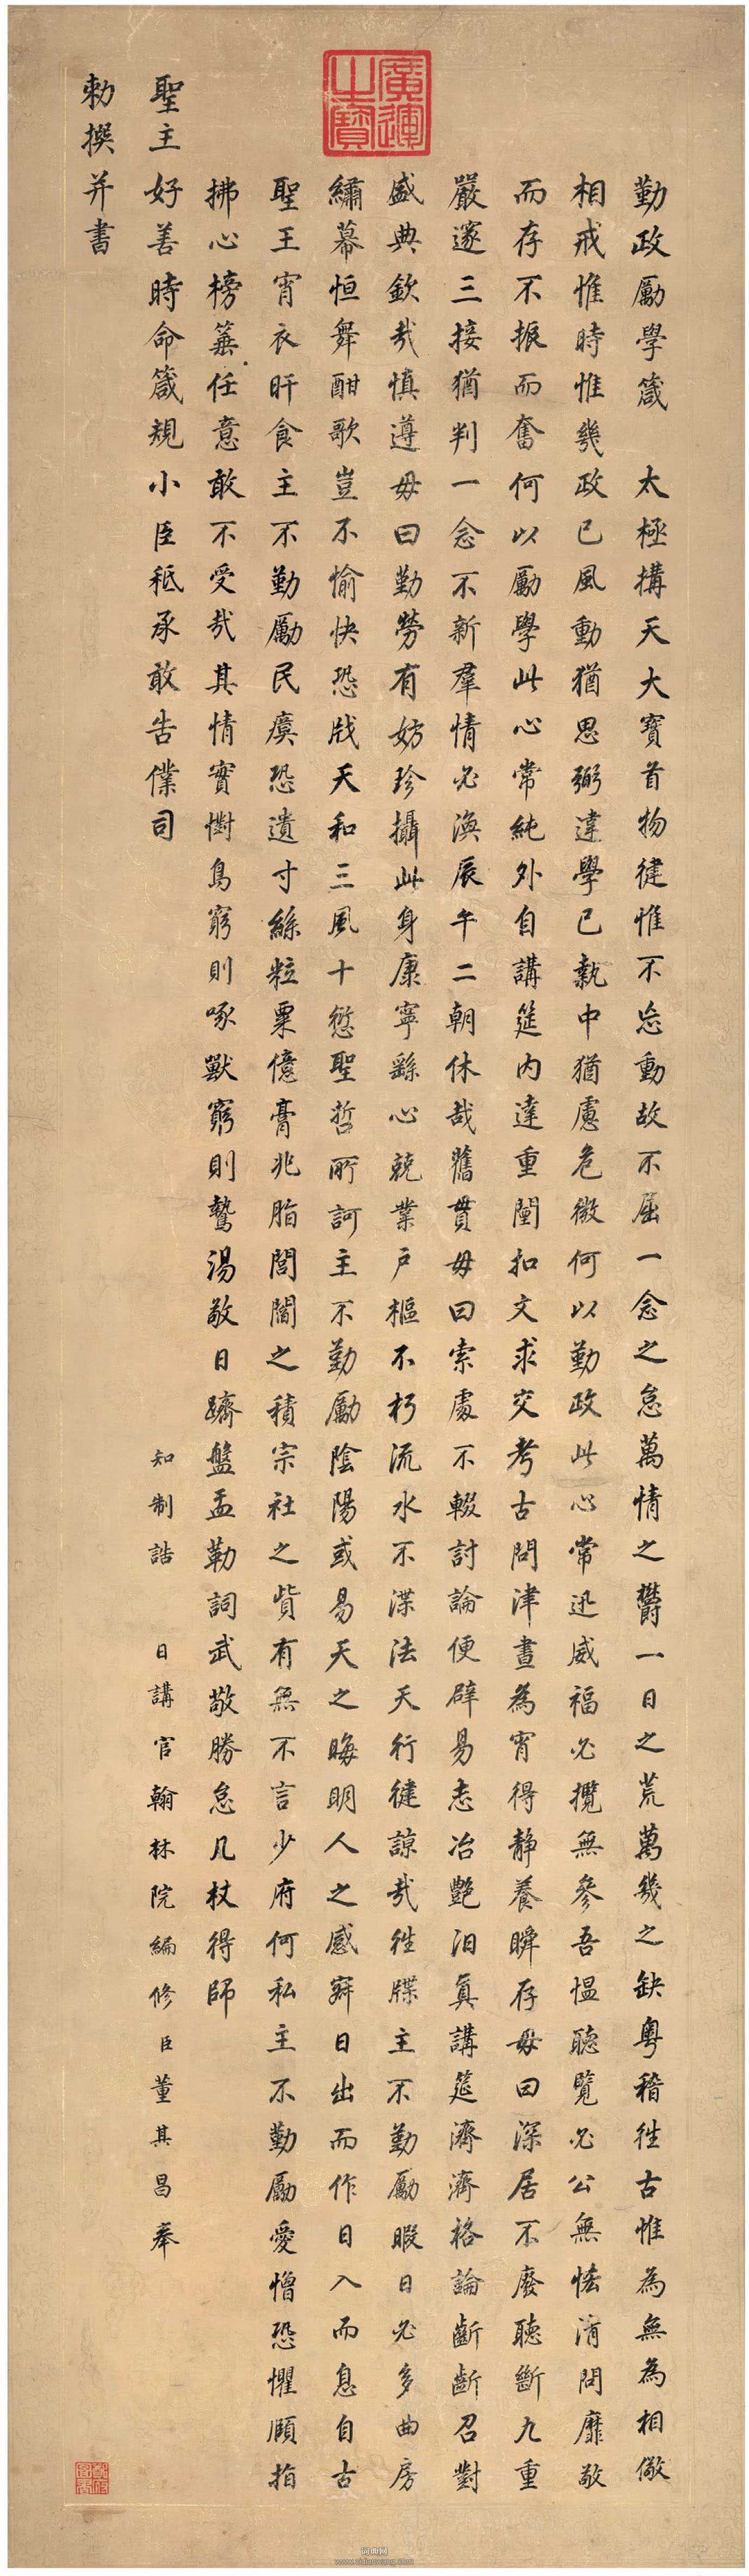 勤政勵學箴　太極搆天大寶首物健惟不息動故不屈一念之怠萬情之鬱一日之荒萬幾之缺粵稽往古惟為無為相儆
相戒惟時惟幾政已風動猶思弼違學已執中猶慮危微何以勤政此心常迅威福必攬無參吾愠聽覽必公無恡清問靡敢
而存不振而奮何以勵學此心常純外自講筵內達重闈扣文求交考古問津晝為宵得靜養瞬存毋曰深居不廢聽斷九重
嚴邃三接猶判一念不新羣情必渙辰午二朝休哉舊貫毋曰索處不輟討論便辟易志冶艷汩真講筵濟濟格論齗齗召對
盛典欽哉慎遵毋曰勤勞有妨珍攝此身康寧繇心兢業戶樞不朽流水不渫法天行健諒哉往牒主不勤勵暇日必多曲房
繡幕恒舞酣歌豈不愉快恐戕天和三風十愆聖哲所訶主不勤勵陰陽或易天之晦明人之感寐日出而作日入而息自古
聖王宵衣旰食主不勤勵民瘼恐遺寸絲粒粟億膏兆脂閭閻之積宗社之貲有無不言少府何私主不勤勵愛憎恐懼顧指
拂心榜箠任意敢不受哉其情實懟鳥窮則啄獸窮則鷙湯敬日躋盤盂勒詞武敬勝怠几杖得師
聖主好善時命箴規小臣秪承敢告僕司　知制誥　日講官翰林院編修臣董其昌奉
勅撰并書
廣運之寶
词典网
www.cidianwang.com